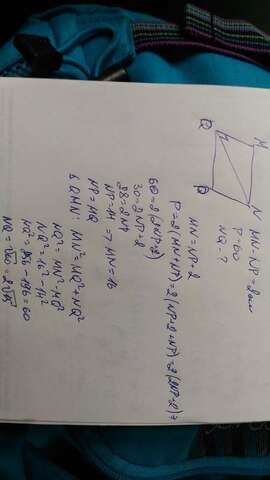 M
N
Q
P
MN-NP=2см
P=60
NQ-?
MN=NP-2
P=2(MN+NP)=2(NP-2+NP)=2(2NP-2)=
60=2(2NP-2)
30=2NP+2
28=2NP
NP=14 => MN=16
NP=MQ
Δ QMN: MN²=MQ²+NQ²
NQ²=MN²-MQ²
NQ²=16²-14²
NQ²=256-196=60
NQ=√60=2√15